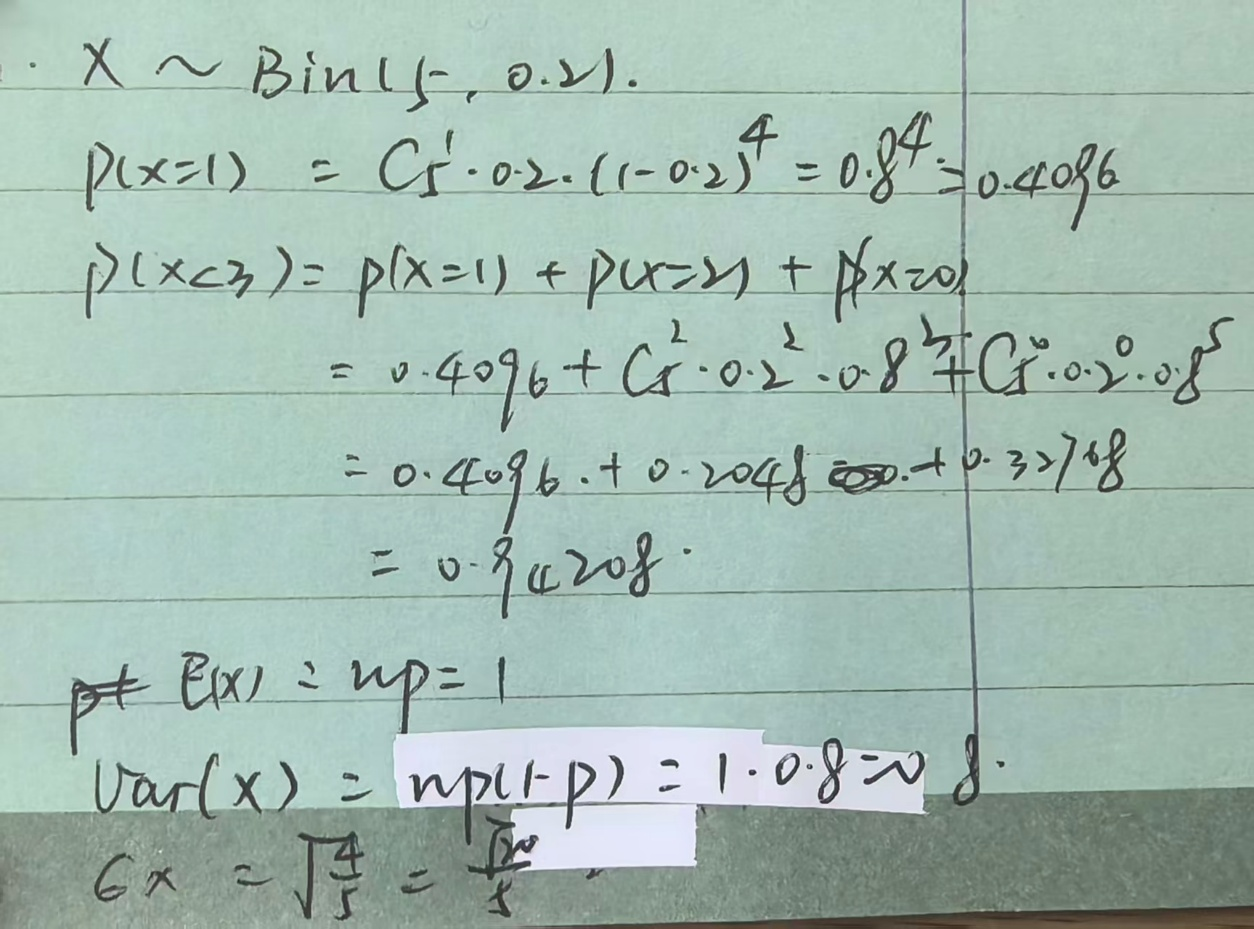 X ~ Bin(5, 0.2).
P(x=1) = C₅¹·0.2·(1-0.2)⁴ = 0.8⁴ = 0.4096
P(x<3) = P(x=1) + P(x=2) + P(x=0)
= 0.4096 + C₅²·0.2²·0.8³ + C₅⁰·0.2⁰·0.8⁵
= 0.4096 + 0.2048 + 0.32768
= 0.94208.
E(x) = np = 1
Var(x) = np(1-p) = 1·0.8 = 0.8.
6x = √(4/5) = √20/5